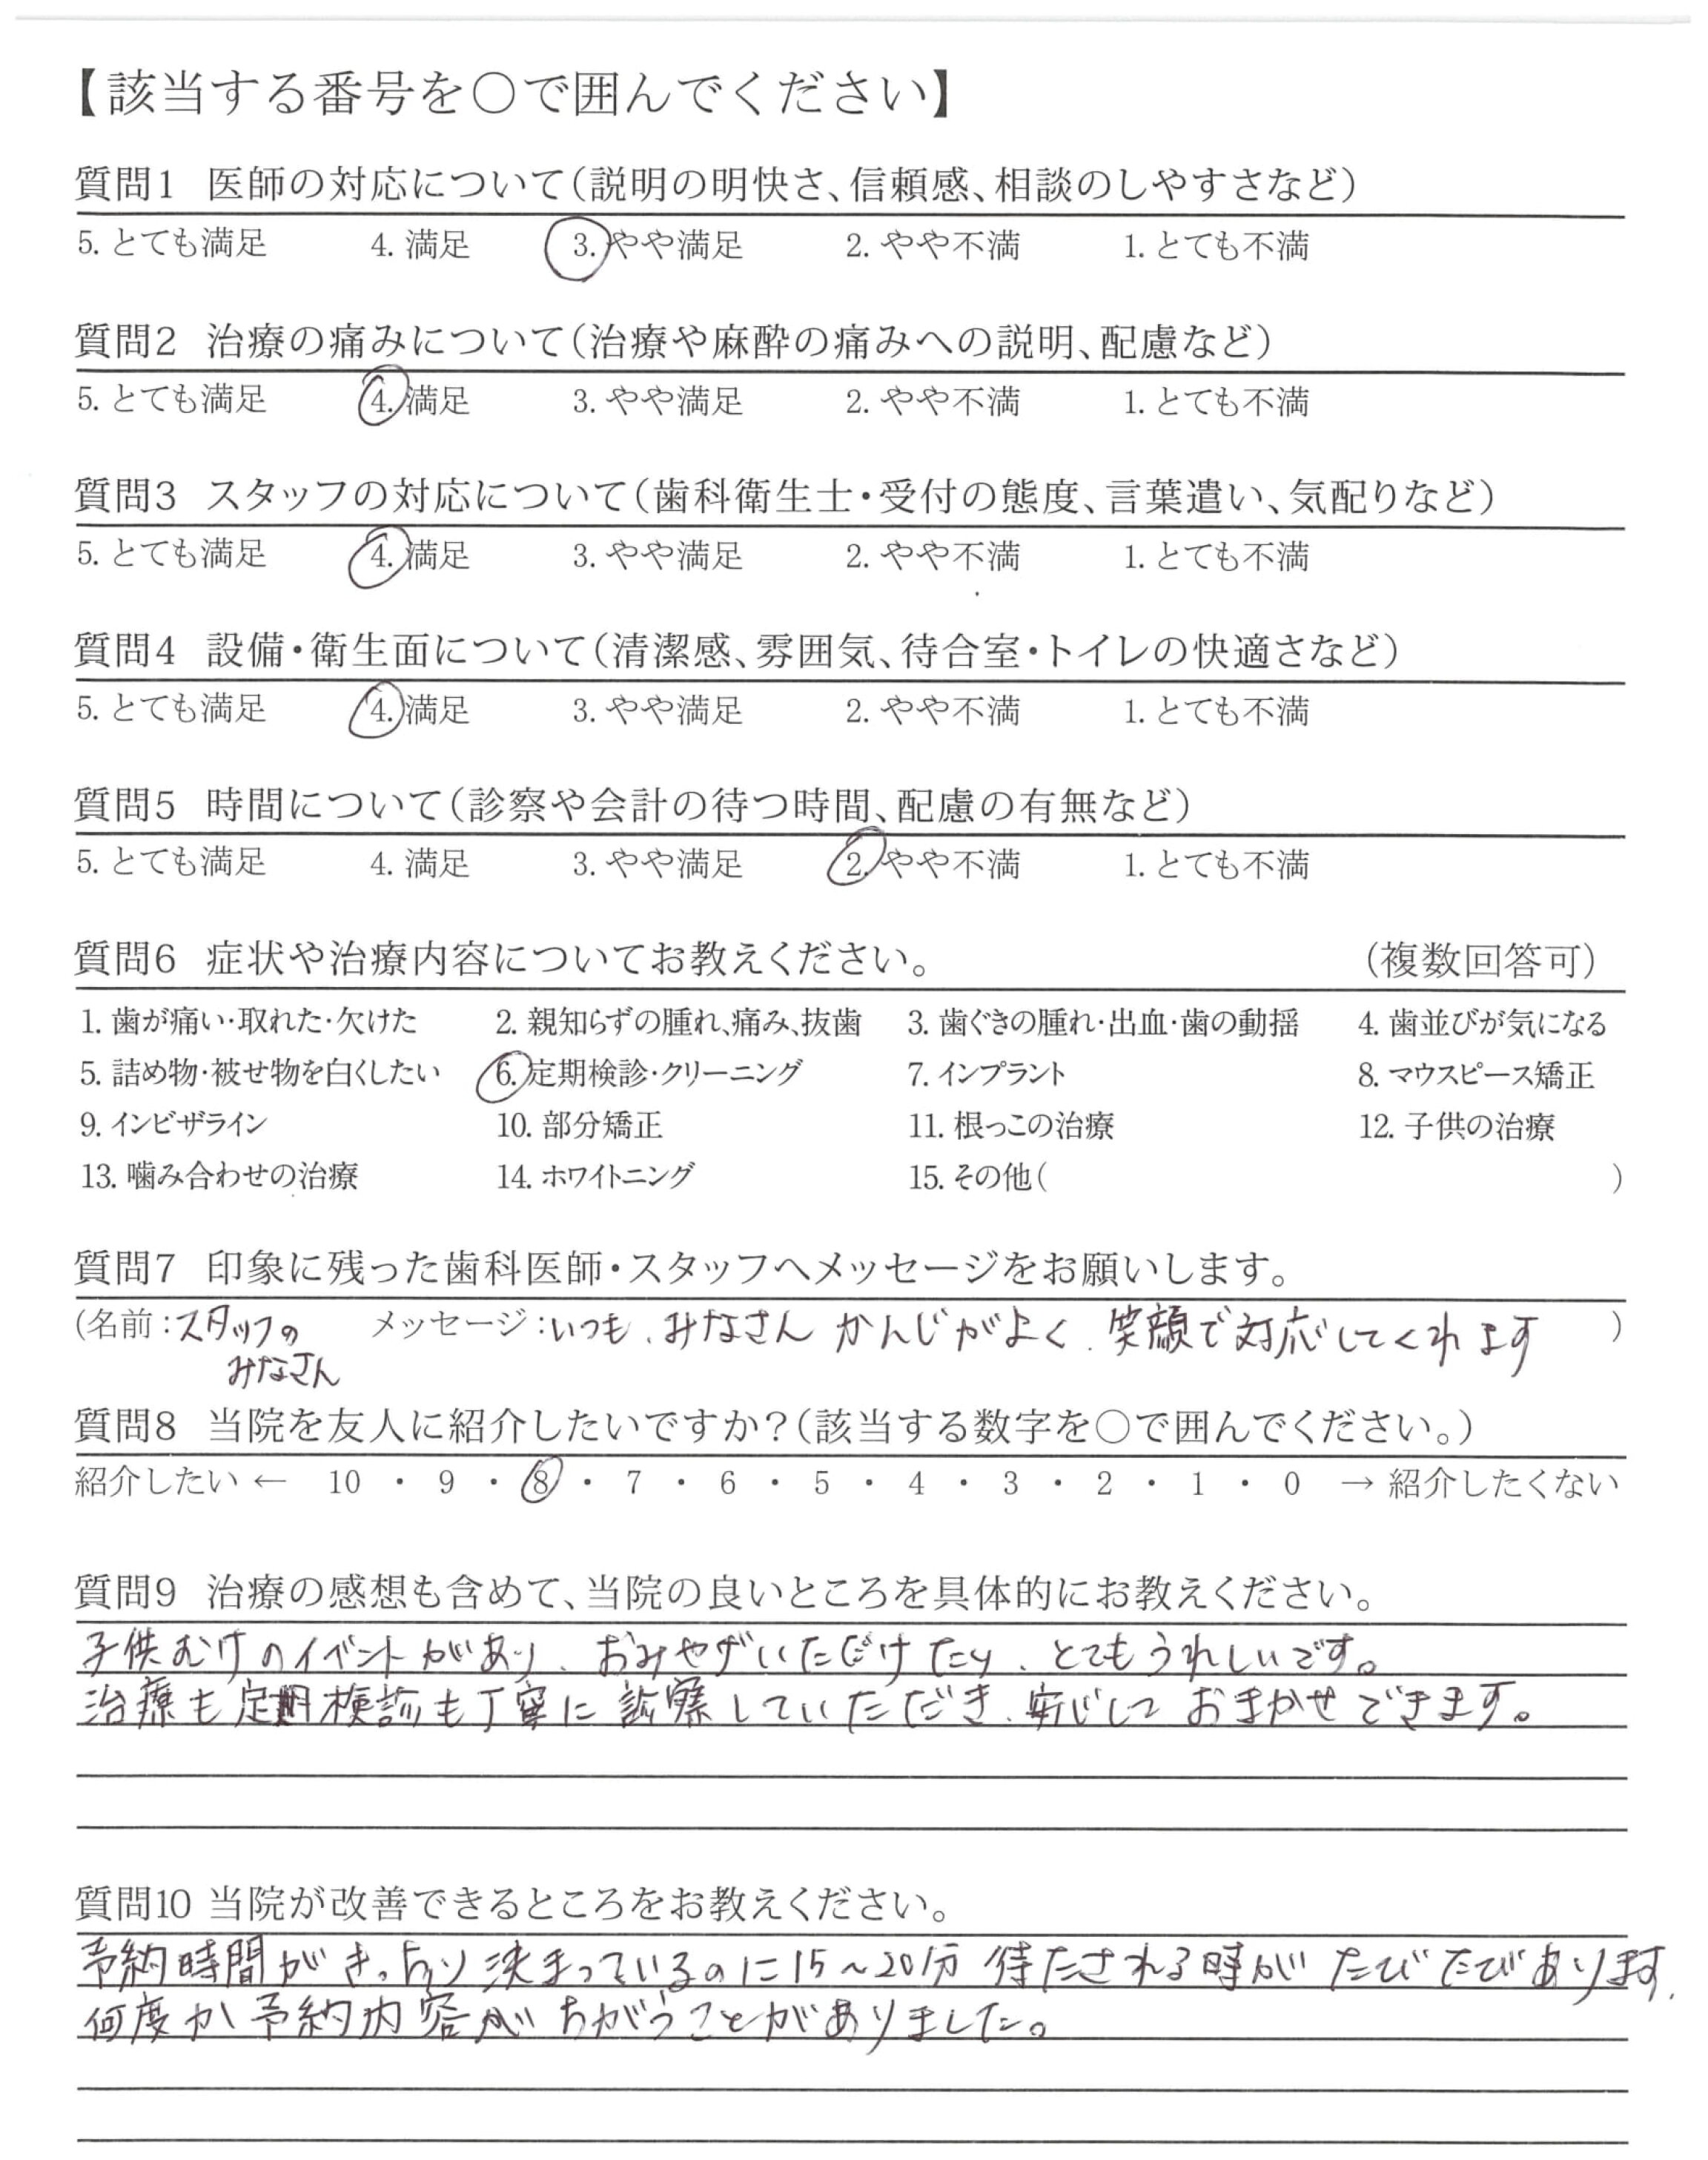 【該当する番号を○で囲んでください】
質問1 医師の対応について(説明の明快さ、信頼感、相談のしやすさなど)
5. とても満足 4. 満足 3. やや満足 2. やや不満 1. とても不満
質問2 治療の痛みについて(治療や麻酔の痛みへの説明、配慮など)
5. とても満足 4. 満足 3. やや満足 2. やや不満 1. とても不満
質問3 スタッフの対応について(歯科衛生士・受付の態度、言葉遣い、気配りなど)
5. とても満足 4. 満足 3. やや満足 2. やや不満 1. とても不満
質問4 設備・衛生面について(清潔感、雰囲気、待合室・トイレの快適さなど)
5. とても満足 4. 満足 3. やや満足 2. やや不満 1. とても不満
質問5 時間について(診察や会計の待つ時間、配慮の有無など)
5. とても満足 4. 満足 3. やや満足 2. やや不満 1. とても不満
質問6 症状や治療内容についてお教えください。 (複数回答可)
1. 歯が痛い・取れた・欠けた 2. 親知らずの腫れ、痛み、抜歯 3. 歯ぐきの腫れ・出血・歯の動揺 4. 歯並びが気になる
5. 詰め物・被せ物を白くしたい 6. 定期検診・クリーニング 7. インプラント 8. マウスピース矯正
9. インビザライン 10. 部分矯正 11. 根っこの治療 12. 子供の治療
13. 噛み合わせの治療 14. ホワイトニング 15. その他( )
質問7 印象に残った歯科医師・スタッフへメッセージをお願いします。
(名前:スタッフの メッセージ:いつも、みなさん かんじがよく、笑顔で対応してくれます )
みなさん
質問8 当院を友人に紹介したいですか?(該当する数字を○で囲んでください。)
紹介したい ← 10 ・ 9 ・ 8 ・ 7 ・ 6 ・ 5 ・ 4 ・ 3 ・ 2 ・ 1 ・ 0 → 紹介したくない
質問9 治療の感想も含めて、当院の良いところを具体的にお教えください。
子供むけのイベントがあり、おみやげいただけたり、とてもうれしいです。
治療も定期検診も丁寧に診察していただき、安心して おまかせできます。
質問10 当院が改善できるところをお教えください。
予約時間がきっちり決まっているのに15~20分 待たされる時が たびたびあります、
何度か予約内容が ちがうことがありました。